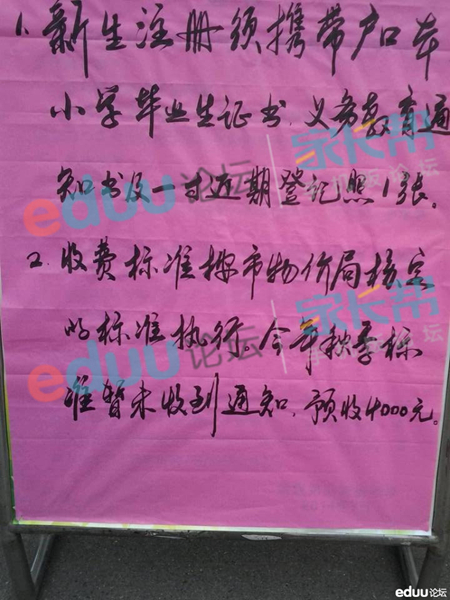 1、新生注册须携带户口本
小学毕业生证书、义务教育通
知书及一寸近期登记照1张。
2、收费标准按市物价局核定
的标准执行,今年秋季标
准暂未收到通知,预收4000元。
eduu论坛
家长帮
eduu论坛
家长帮
eduu论坛